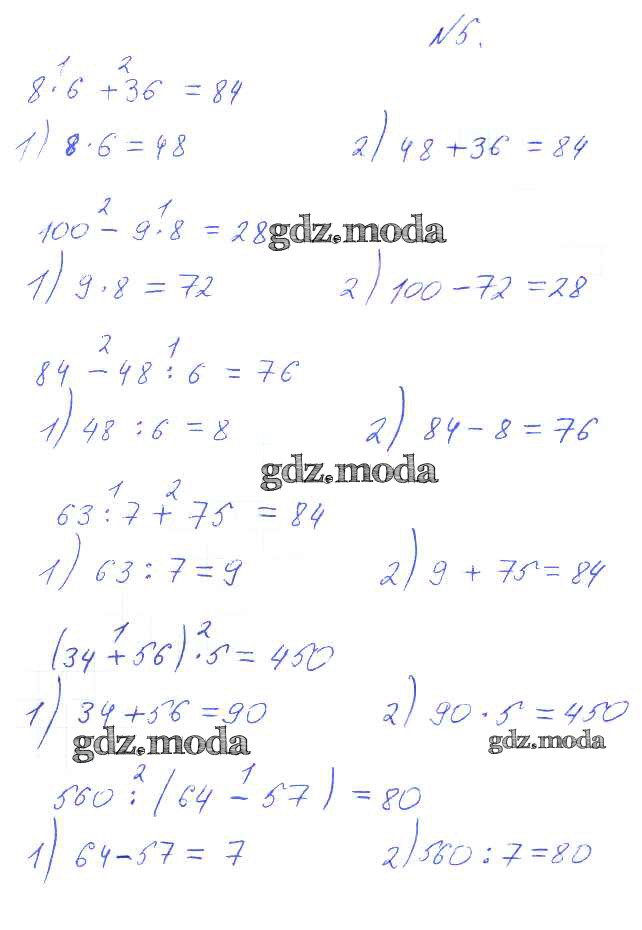 №5.
1 2
8·6 +36 = 84
1) 8·6 = 48 2) 48 +36 = 84
2 1
100 - 9·8 = 28 gdz.moda
1) 9·8 = 72 2) 100 -72 =28
2 1
84 - 48 : 6 = 76
1) 48 : 6 = 8 2) 84 - 8 = 76
gdz.moda
1 2
63 : 7 + 75 = 84
1) 63 : 7 = 9 2) 9 + 75 = 84
1 2
(34 +56)·5 = 450
1) 34 +56 = 90 2) 90·5 = 450
gdz.moda gdz.moda
2 1
560 : (64 - 57) = 80
1) 64-57 = 7 2) 560 : 7 = 80